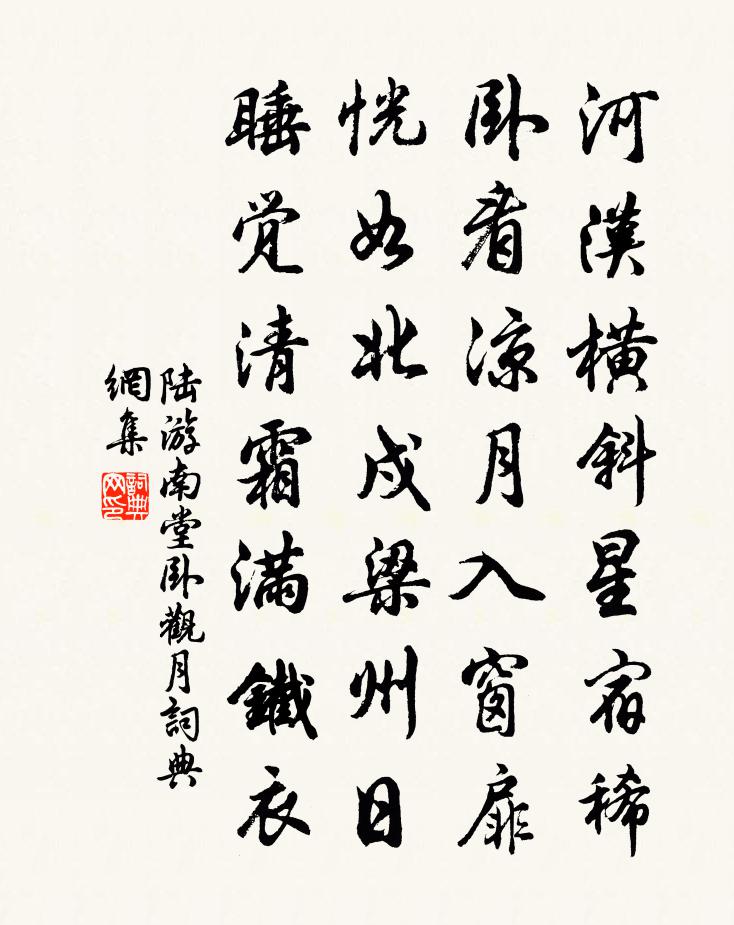 河漢橫斜星宿稀
卧看涼月入窗扉
恍如北戍梁州日
睡觉清霜满鐵衣
陆游南堂卧觀月詞典
網集
詞典
网印